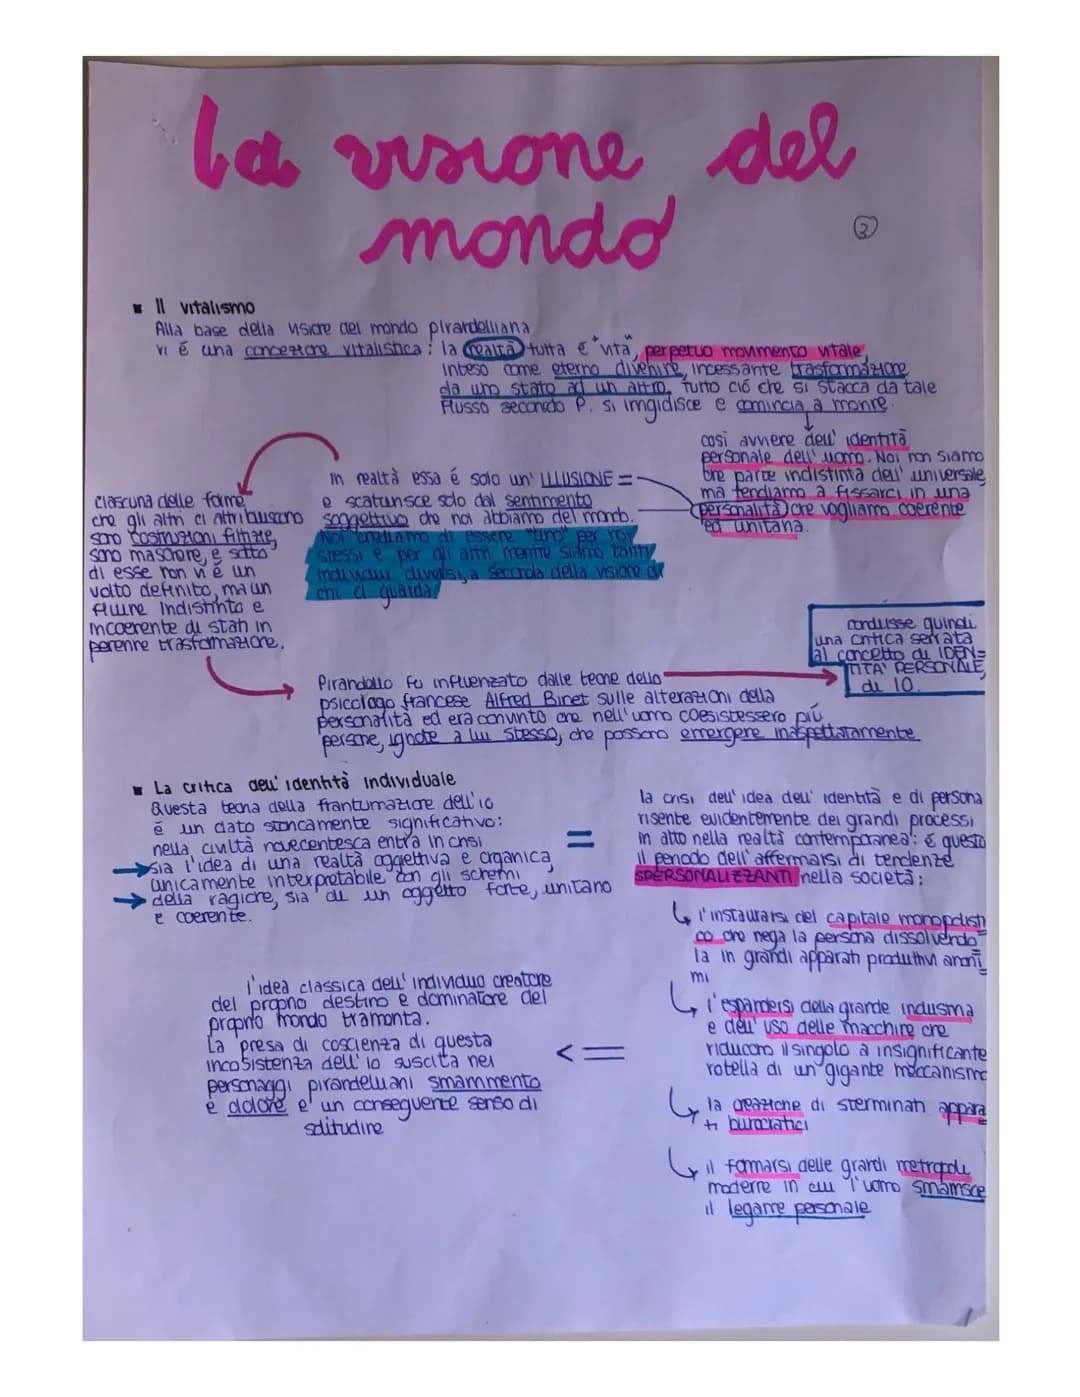 La visione del
mondo
2
Il vitalismo
Alla base della visione del mondo pirandelliana
vi é una concezione vitalistica: la realtà tutta é "vita", perpetuo movimento vitale,
inteso come eterno divenire, incessante trasformazione
da uno stato ad un altro. Tutto ció che si stacca da tale
flusso secondo P. si irrigidisce e comincia a morire.
così avviene dell' identità
personale dell' uomo. Noi non siamo
che parte indistinta dell' universale,
ma tendiamo a fissarci in una
personalità che vogliamo coerente
ed unitaria.
In realtà essa é solo un' ILLUSIONE =
e scaturisce solo dal sentimento
soggettivo che noi abbiamo del mondo.
Noi crediamo di essere "uno" per noi
stessi e per gli altri, mentre siamo tanti
individui diversi, a seconda della visione di
chi ci guarda
ciascuna delle forme
che gli altri ci attribuiscono
sono costruzioni fittizie,
sono maschere, e sotto
di esse non vi é un
volto definito, ma un
fluire indistinto e
incoerente di stati in
perenne trasformazione.
Pirandello fu influenzato dalle teorie dello
psicologo francese Alfred Binet sulle alterazioni della
personalità ed era convinto che nell'uomo coesistessero più
persone, ignote a lui stesso, che possono emergere inaspettatamente
condusse quindi
una critica serrata
al concetto di IDEN=
TITA' PERSONALE,
di IO.
La critica dell' identità individuale
Questa teoria della frantumazione dell'io
é un dato storicamente significativo:
nella civiltà novecentesca entra in crisi
sia l'idea di una realtà oggettiva e organica,
unicamente interpretabile con gli schemi
della ragione, sia di un oggetto forte, unitario
e coerente.
=
la crisi dell' idea dell' identità e di persona
risente evidentemente dei grandi processi
in atto nella realtà contemporanea: é questo
il periodo dell' affermarsi di tendenze
SPERSONALIZZANTI nella società:
l'instaurarsi del capitale monopolisti
co che nega la persona dissolvendo=
la in grandi apparati produttivi anoni
mi
l'espandersi della grande industria
e dell' uso delle macchine che
riducono il singolo a insignificante
rotella di un gigante meccanismo
la creazione di sterminati appara
ti burocratici
il formarsi delle grandi metropoli
moderne in cui l'uomo smarrisce
il legame personale
<=
l'idea classica dell' individuo creatore
del proprio destino e dominatore del
proprio mondo tramonta.
La presa di coscienza di questa
incosistenza dell' io suscita nei
personaggi pirandelliani smarrimento
e dolore e un conseguente senso di
solitudine